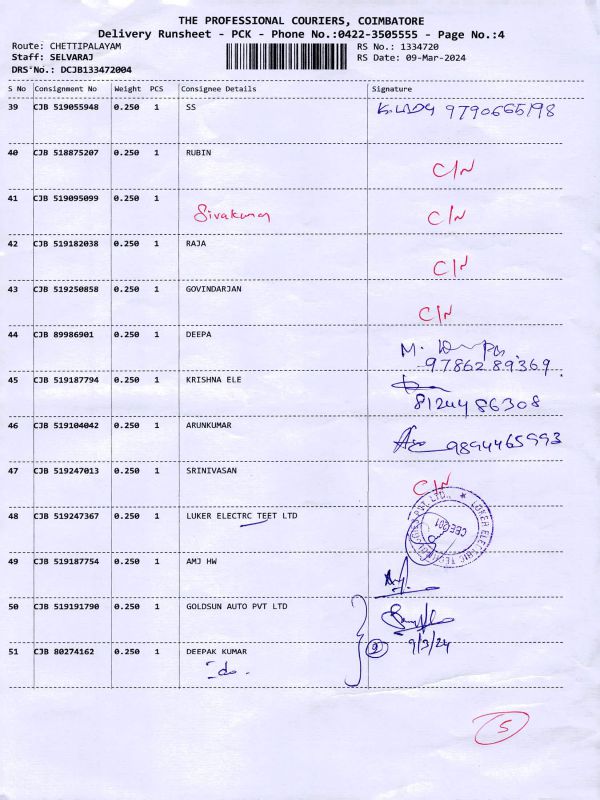 THE PROFESSIONAL COURIERS, COIMBATORE
Delivery Runsheet - PCK - Phone No.:0422-3505555 - Page No.:4
Route: CHETTIPALAYAM RS No.: 1334720
Staff: SELVARAJ RS Date: 09-Mar-2024
DRS No.: DCJB133472004
S No Consignment No Weight PCS Consignee Details Signature
39 CJB 519055948 0.250 1 SS 9790665198
40 CJB 518875207 0.250 1 RUBIN C/N
41 CJB 519095099 0.250 1 Sivakumar C/N
42 CJB 519182038 0.250 1 RAJA C/N
43 CJB 519250858 0.250 1 GOVINDARJAN C/N
44 CJB 89986901 0.250 1 DEEPA M.
9786289369.
45 CJB 519187794 0.250 1 KRISHNA ELE
8124486308
46 CJB 519104042 0.250 1 ARUNKUMAR 9894465993
47 CJB 519247013 0.250 1 SRINIVASAN C/N
48 CJB 519247367 0.250 1 LUKER ELECTRC TEET LTD
49 CJB 519187754 0.250 1 AMJ HW
50 CJB 519191790 0.250 1 GOLDSUN AUTO PVT LTD
51 CJB 80274162 0.250 1 DEEPAK KUMAR 9/3/24
-do-
5